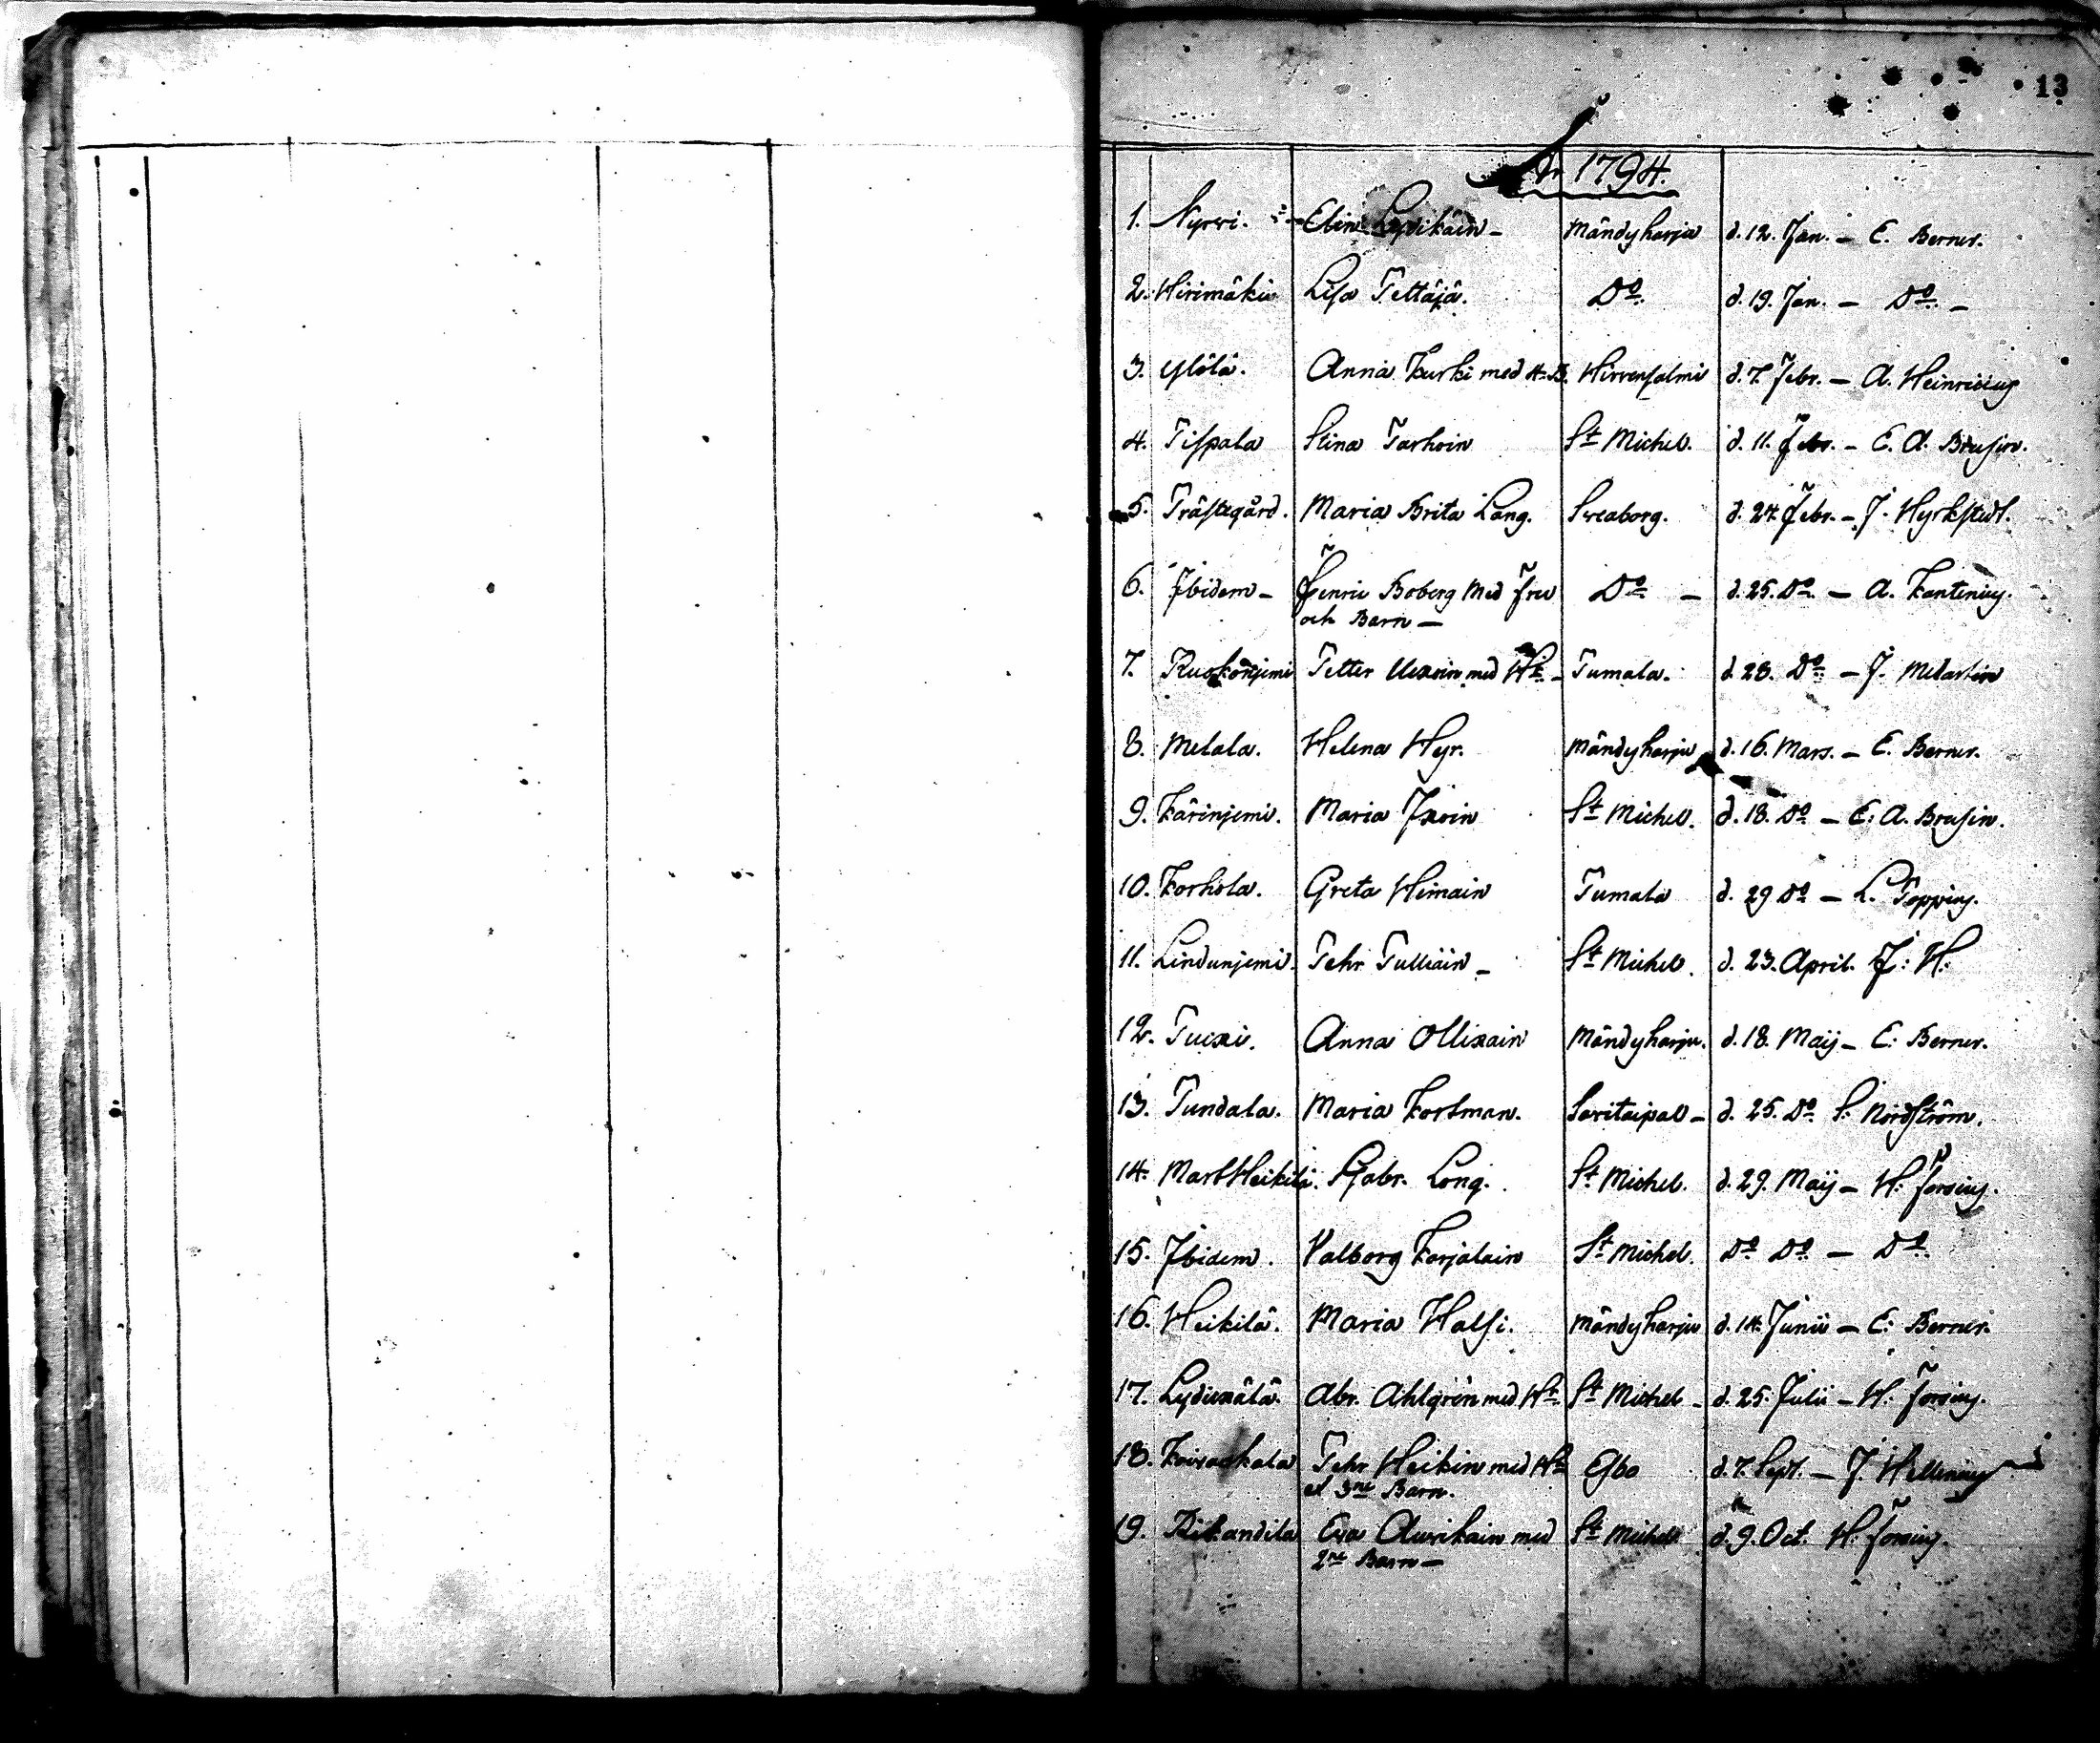 13
År 1794.
1. Nyrri. Elin Lydikäin - Mändyharju d. 12. Jan. - E. Berner.
2. Hirimäki Lisa Pettäjä. Do. d. 19. Jan. - Do. -
3. Ylölä. Anna Kurki med 4. B. Hirvensalmi d. 7. Febr. - A. Heinricius
4. Pispala Stina Tarhoin St Michel. d. 11. Febr. - E. A. Brusin.
5. Prästegård. Maria Brita Lang. Sveaborg. d. 24 Febr. - J. Hyrkstedt.
6. Ibidem - Henric Boberg med Fru Do - d. 25. Do - A. Kantenius.
och Barn -
7. Ruokonjemi Petter Uexoin med Hu - Pumala. d. 28. Do - J. Melartin
8. Melala. Helena Hyr. Mändyharju d. 16. Mars. - E. Berner.
9. Kärinjemi. Maria Ixoin St Michel. d. 18. Do - E. A. Brusin.
10. Korhola. Greta Himain Pumala d. 29 Do - L. Poppius.
11. Lindunjemi. Pehr Pulliäin - St Michel. d. 23. April. J: H:
12. Puxi. Anna Ollixain Mändyharju. d. 18. Maij - E: Berner.
13. Pundala. Maria Kortman. Savitaipal - d. 25. Do S: Nordström.
14. Mart Heikilä. Gabr. Long. St Michel. d. 29. Maij - H. Forsius.
15. Ibidem. Valborg Karjalain St Michel. Do Do - Do
16. Heikilä. Maria Halsi. Mändyharju d. 14. Junii - E: Berner.
17. Lydixälä. Abr. Ahlgrén med Hu St Michel - d. 25. Julii - H. Forsius.
18. Koivackala Pehr Heikin med Hu Esbo d. 7. Sept. - J. Hellenius
et 3ne Barn.
19. Rikandila Eva Auvikain med St Michel d. 9. Oct. H. Forsius.
2ne Barn -